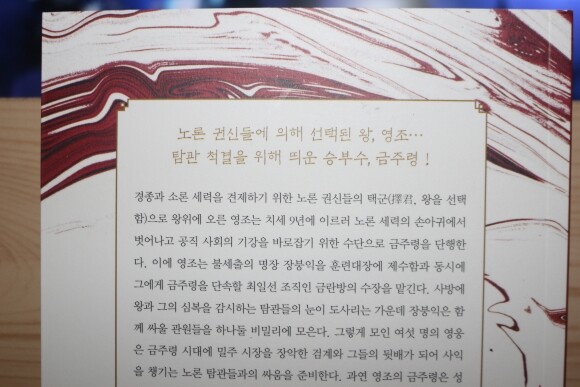 노론 권신들에 의해 선택된 왕, 영조…
탐관 척결을 위해 띄운 승부수, 금주령!
경종과 소론 세력을 견제하기 위한 노론 권신들의 택군(擇君, 왕을 선택
함)으로 왕위에 오른 영조는 치세 9년에 이르러 노론 세력의 손아귀에서
벗어나고 공직 사회의 기강을 바로잡기 위한 수단으로 금주령을 단행한
다. 이에 영조는 불세출의 명장 장붕익을 훈련대장에 제수함과 동시에
그에게 금주령을 단속할 최일선 조직인 금란방의 수장을 맡긴다. 사방에
왕과 그의 심복을 감시하는 탐관들의 눈이 도사리는 가운데 장붕익은 함
께 싸울 관원들을 하나둘 비밀리에 모은다. 그렇게 모인 여섯 명의 영웅
은 금주령 시대에 밀주 시장을 장악한 검계와 그들의 뒷배가 되어 사익
을 챙기는 노론 탐관들과의 싸움을 준비한다. 과연 영조의 금주령은 성